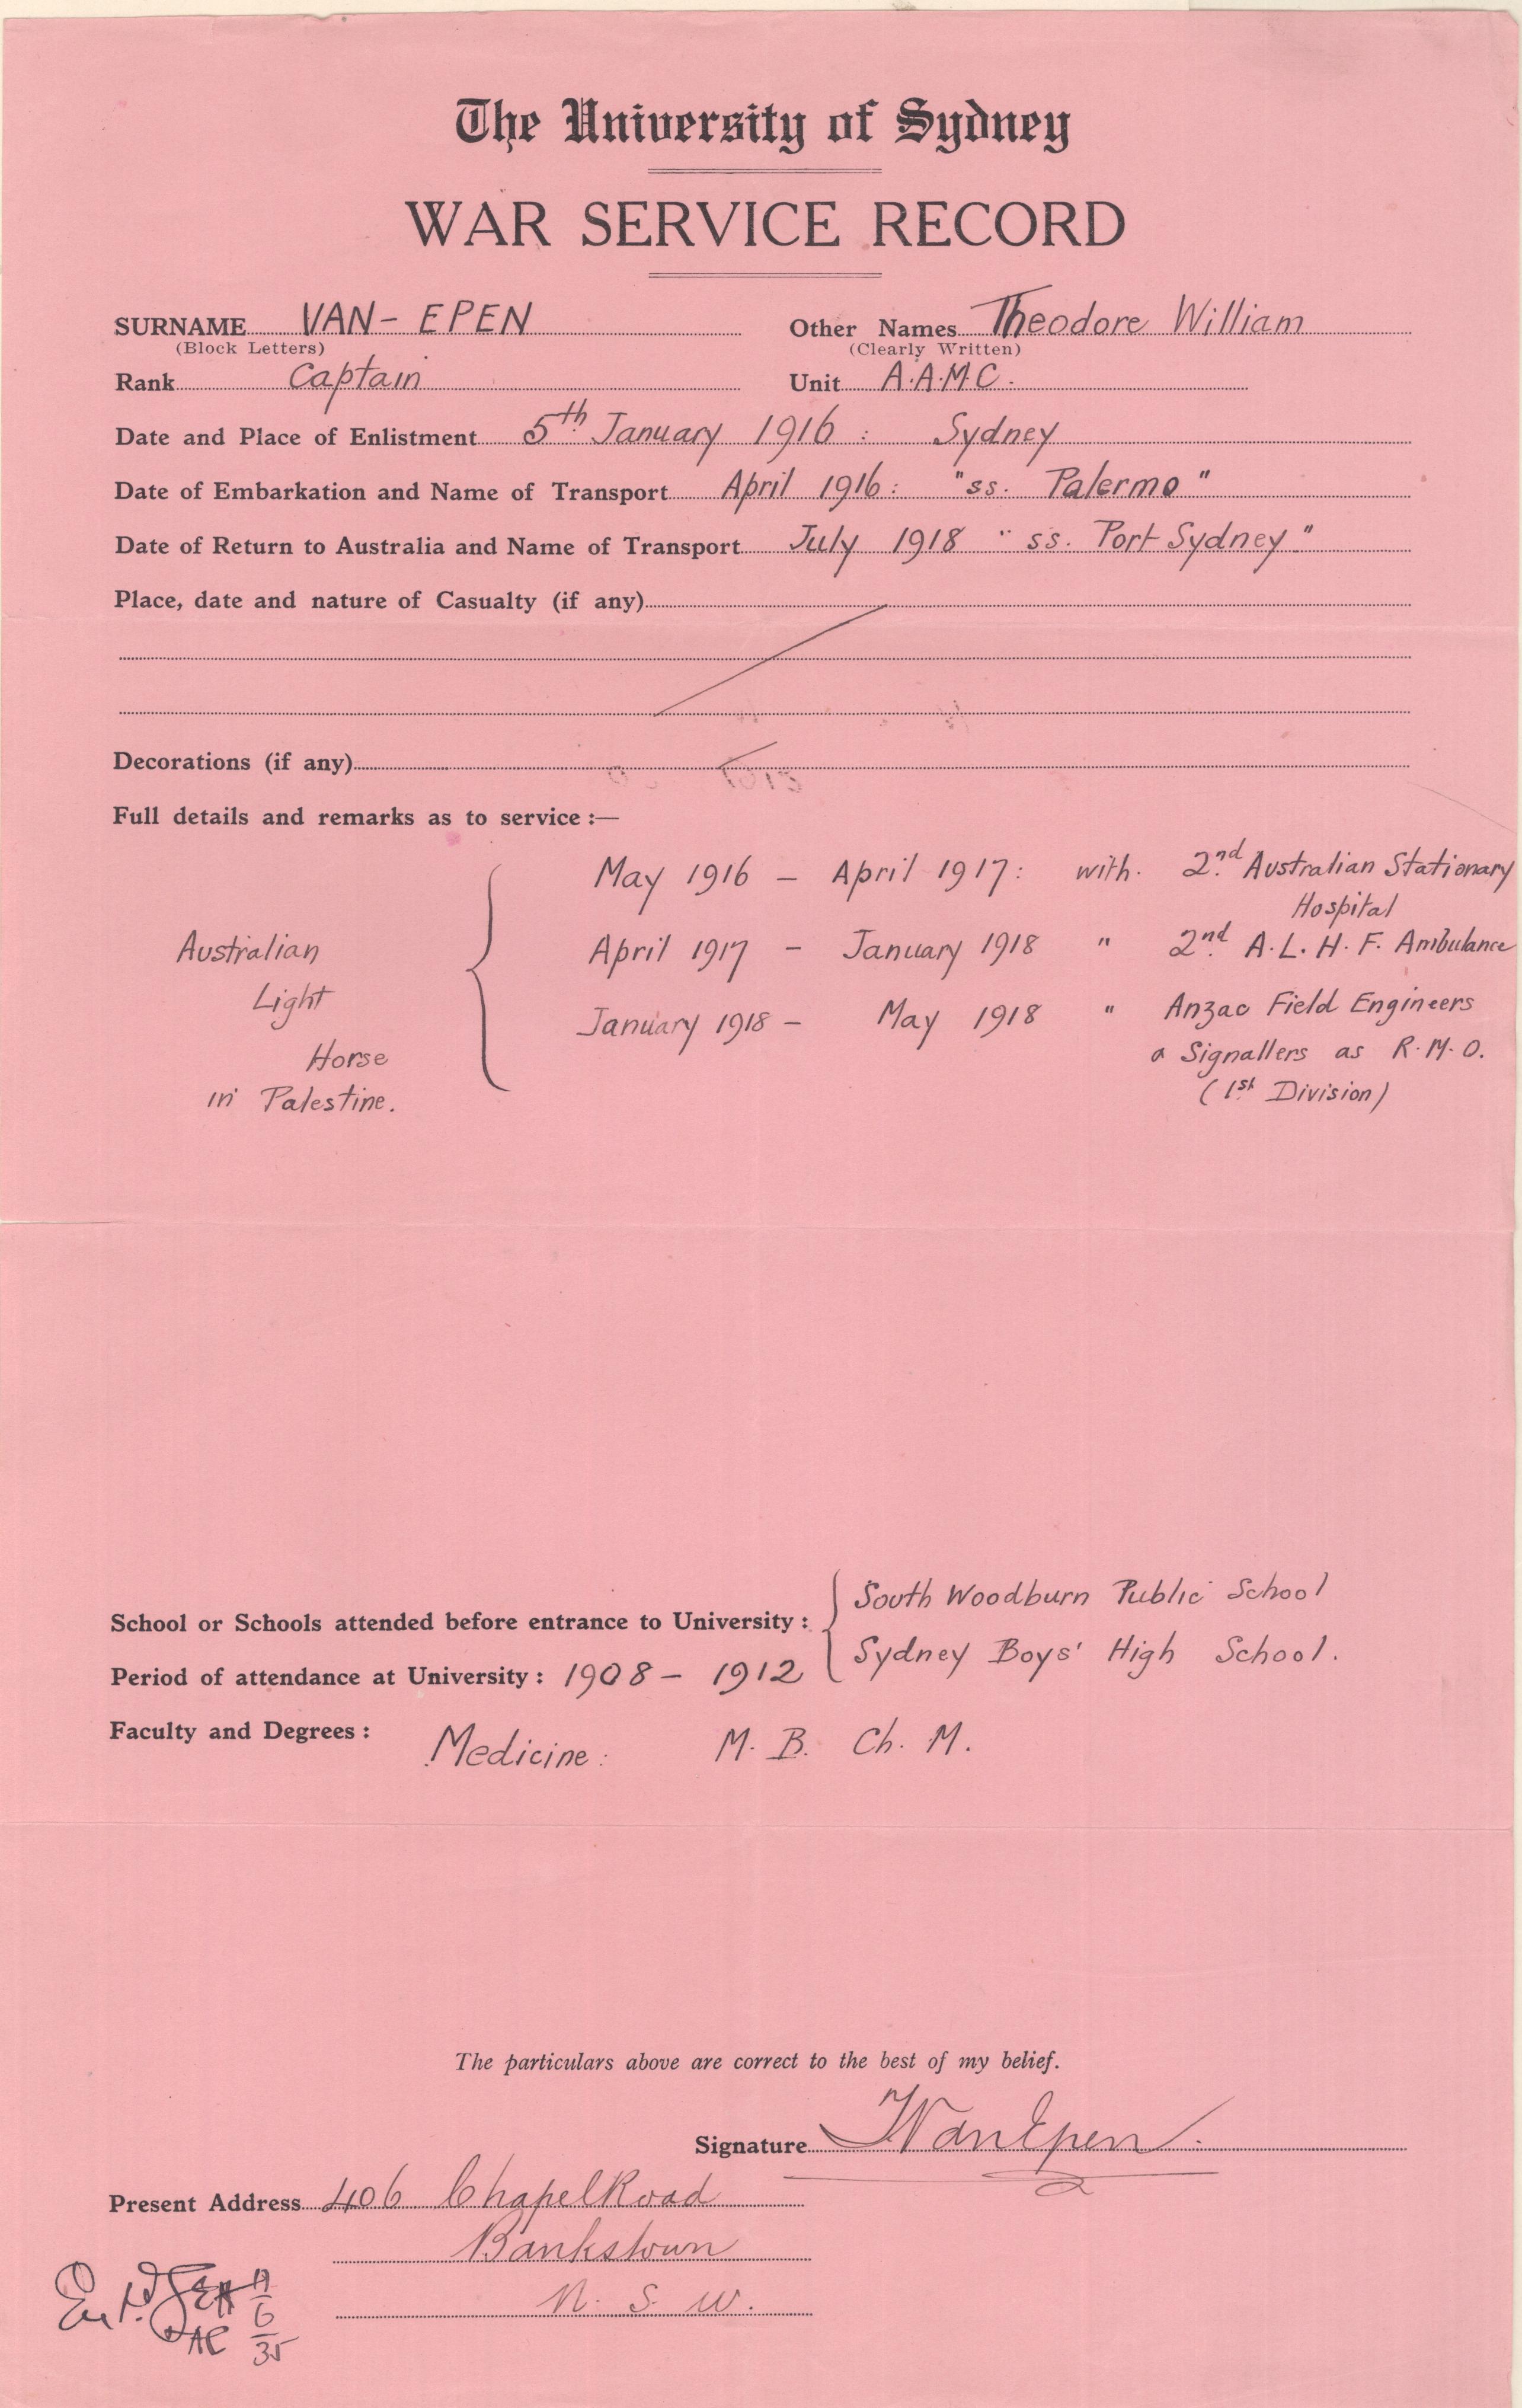 The University of Sydney
WAR SERVICE RECORD
SURNAME VAN-EPEN Other Names Theodore William
(Block Letters) (Clearly Written)
Rank Captain Unit A.A.M.C.
Date and Place of Enlistment 5th January 1916 : Sydney
Date of Embarkation and Name of Transport April 1916: "ss. Palermo"
Date of Return to Australia and Name of Transport July 1918 "ss. Port Sydney"
Place, date and nature of Casualty (if any)
Decorations (if any)
Full details and remarks as to service :—
May 1916 – April 1917: with. 2nd Australian Stationary
Hospital
Australian
April 1917 – January 1918 " 2nd A.L.H.F. Ambulance
Light
January 1918 – May 1918 " Anzac Field Engineers
Horse
Signallers as R.M.O.
in Palestine.
(1st Division)
South Woodburn Public School
School or Schools attended before entrance to University :
Sydney Boys' High School.
Period of attendance at University : 1908 – 1912
Faculty and Degrees : Medicine: M. B. Ch. M.
The particulars above are correct to the best of my belief.
Signature VanEpen
Present Address 406 Chapel Road
Bankstown
N. S. W.
6
35